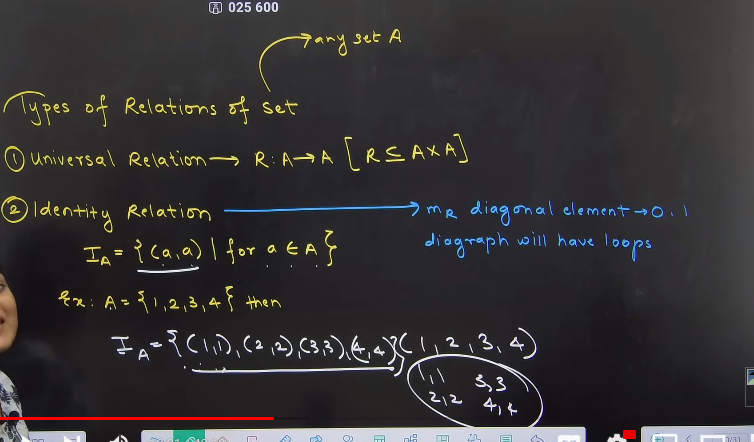 025 600
any set A
Types of Relations of set
① Universal Relation → R: A→A [R ⊆ A×A]
② Identity Relation → mR diagonal element → 0, 1
diagraph will have loops
I_A = {(a,a) | for a ∈ A}
Ex: A = {1,2,3,4} then
I_A = {(1,1),(2,2),(3,3),(4,4)} (1,2,3,4)
1,1 3,3
2,2 4,4